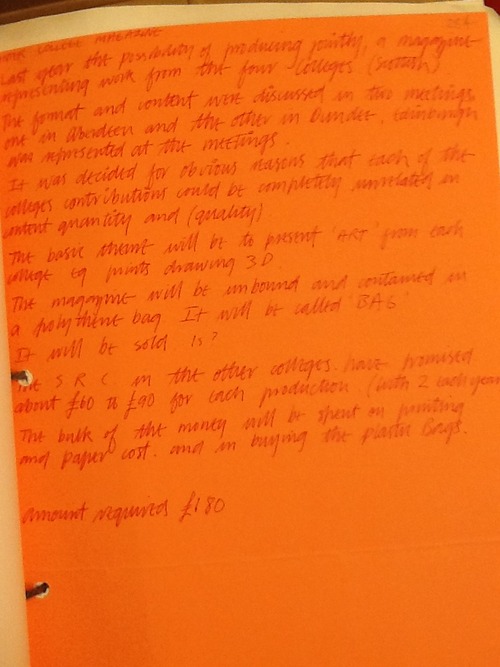 COLLEGE MAGAZINE
Last year the possibility of producing jointly, a magazine
representing work from the four colleges
The format and content were discussed in two meetings
one in Aberdeen and the other in Dundee. Edinburgh
was represented at the meetings.
It was decided for obvious reasons that each of the
colleges contributions could be completely unrelated in
content quantity and (quality)
The basic theme will be to present 'ART' from each
college eg prints drawing 3.D.
The magazine will be unbound and contained in
a polythene bag It will be called 'BAG'
It will be sold 1s?
The S R C in the other colleges. have promised
about £60 to £90 for each production (with 2 each year
The bulk of the money will be spent on printing
and paper cost. and in buying the plastic Bags.
amount required £180